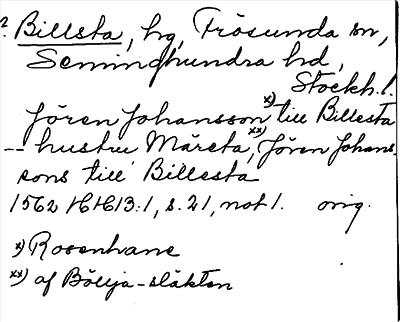 ? Billsta, hg, Frösunda sn,
Seminghundra hd,
Stockh.l.
Jören Johansson x) till Billesta
-- hustru Märeta, xx) Jören Johans-
sons till Billesta
1562 HH13:1, s. 21, not 1. orig.
x) Rosenhane
xx) af Böllja-släkten